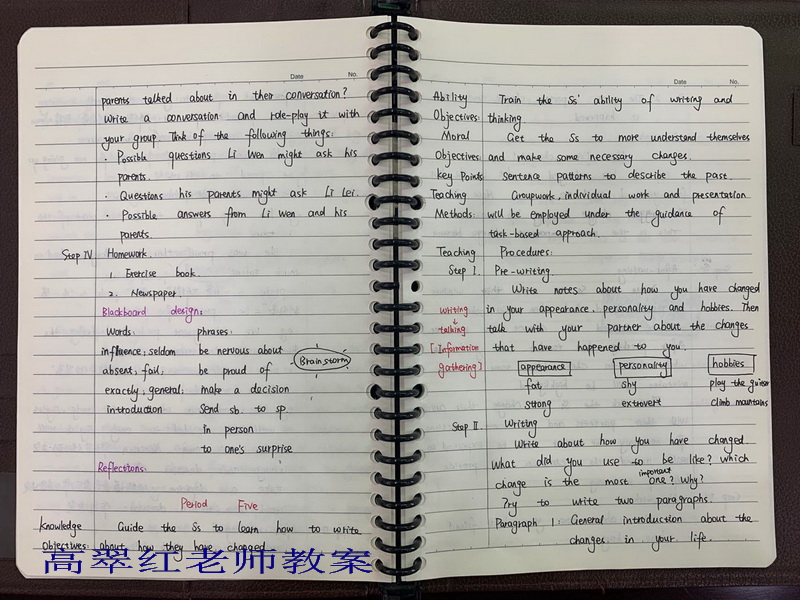 Date No.
parents talked about in their conversation?
Write a conversation and role-play it with
your group. Think of the following things:
· Possible questions Li Wen might ask his
parents.
· Questions his parents might ask Li Lei.
· Possible answers from Li Wen and his
parents.
Step IV Homework.
1. Exercise book.
2. Newspaper.
Blackboard design:
Words: phrases:
influence; seldom be nervous about
absent; fail; be proud of
Brainstorm
exactly; general; make a decision
introduction Send sb. to sp.
in person
to one's surprise
Reflections:
Period Five
Knowledge Guide the Ss to learn how to write
Objectives: about how they have changed
高翠红老师教案
Date No.
Ability Train the Ss' ability of writing and
Objectives: thinking.
Moral Get the Ss to more understand themselves
Objectives: and make some necessary changes.
Key Points: Sentence patterns to describe the past.
Teaching Groupwork, individual work and presentation
Methods: will be employed under the guidance of
task-based approach.
Teaching Procedures:
Step I. Pre-writing.
Write notes about how you have changed
writing in your appearance, personality and hobbies. Then
↓
talking talk with your partner about the changes
[Information that have happened to you.
gathering] appearance personality hobbies
fat shy play the
strong extrovert climb mountains
Step II Writing
Write about how you have changed.
What did you use to be like? Which
change is the most important one? Why?
Try to write two paragraphs.
Paragraph 1: General introduction about the
changes in your life.